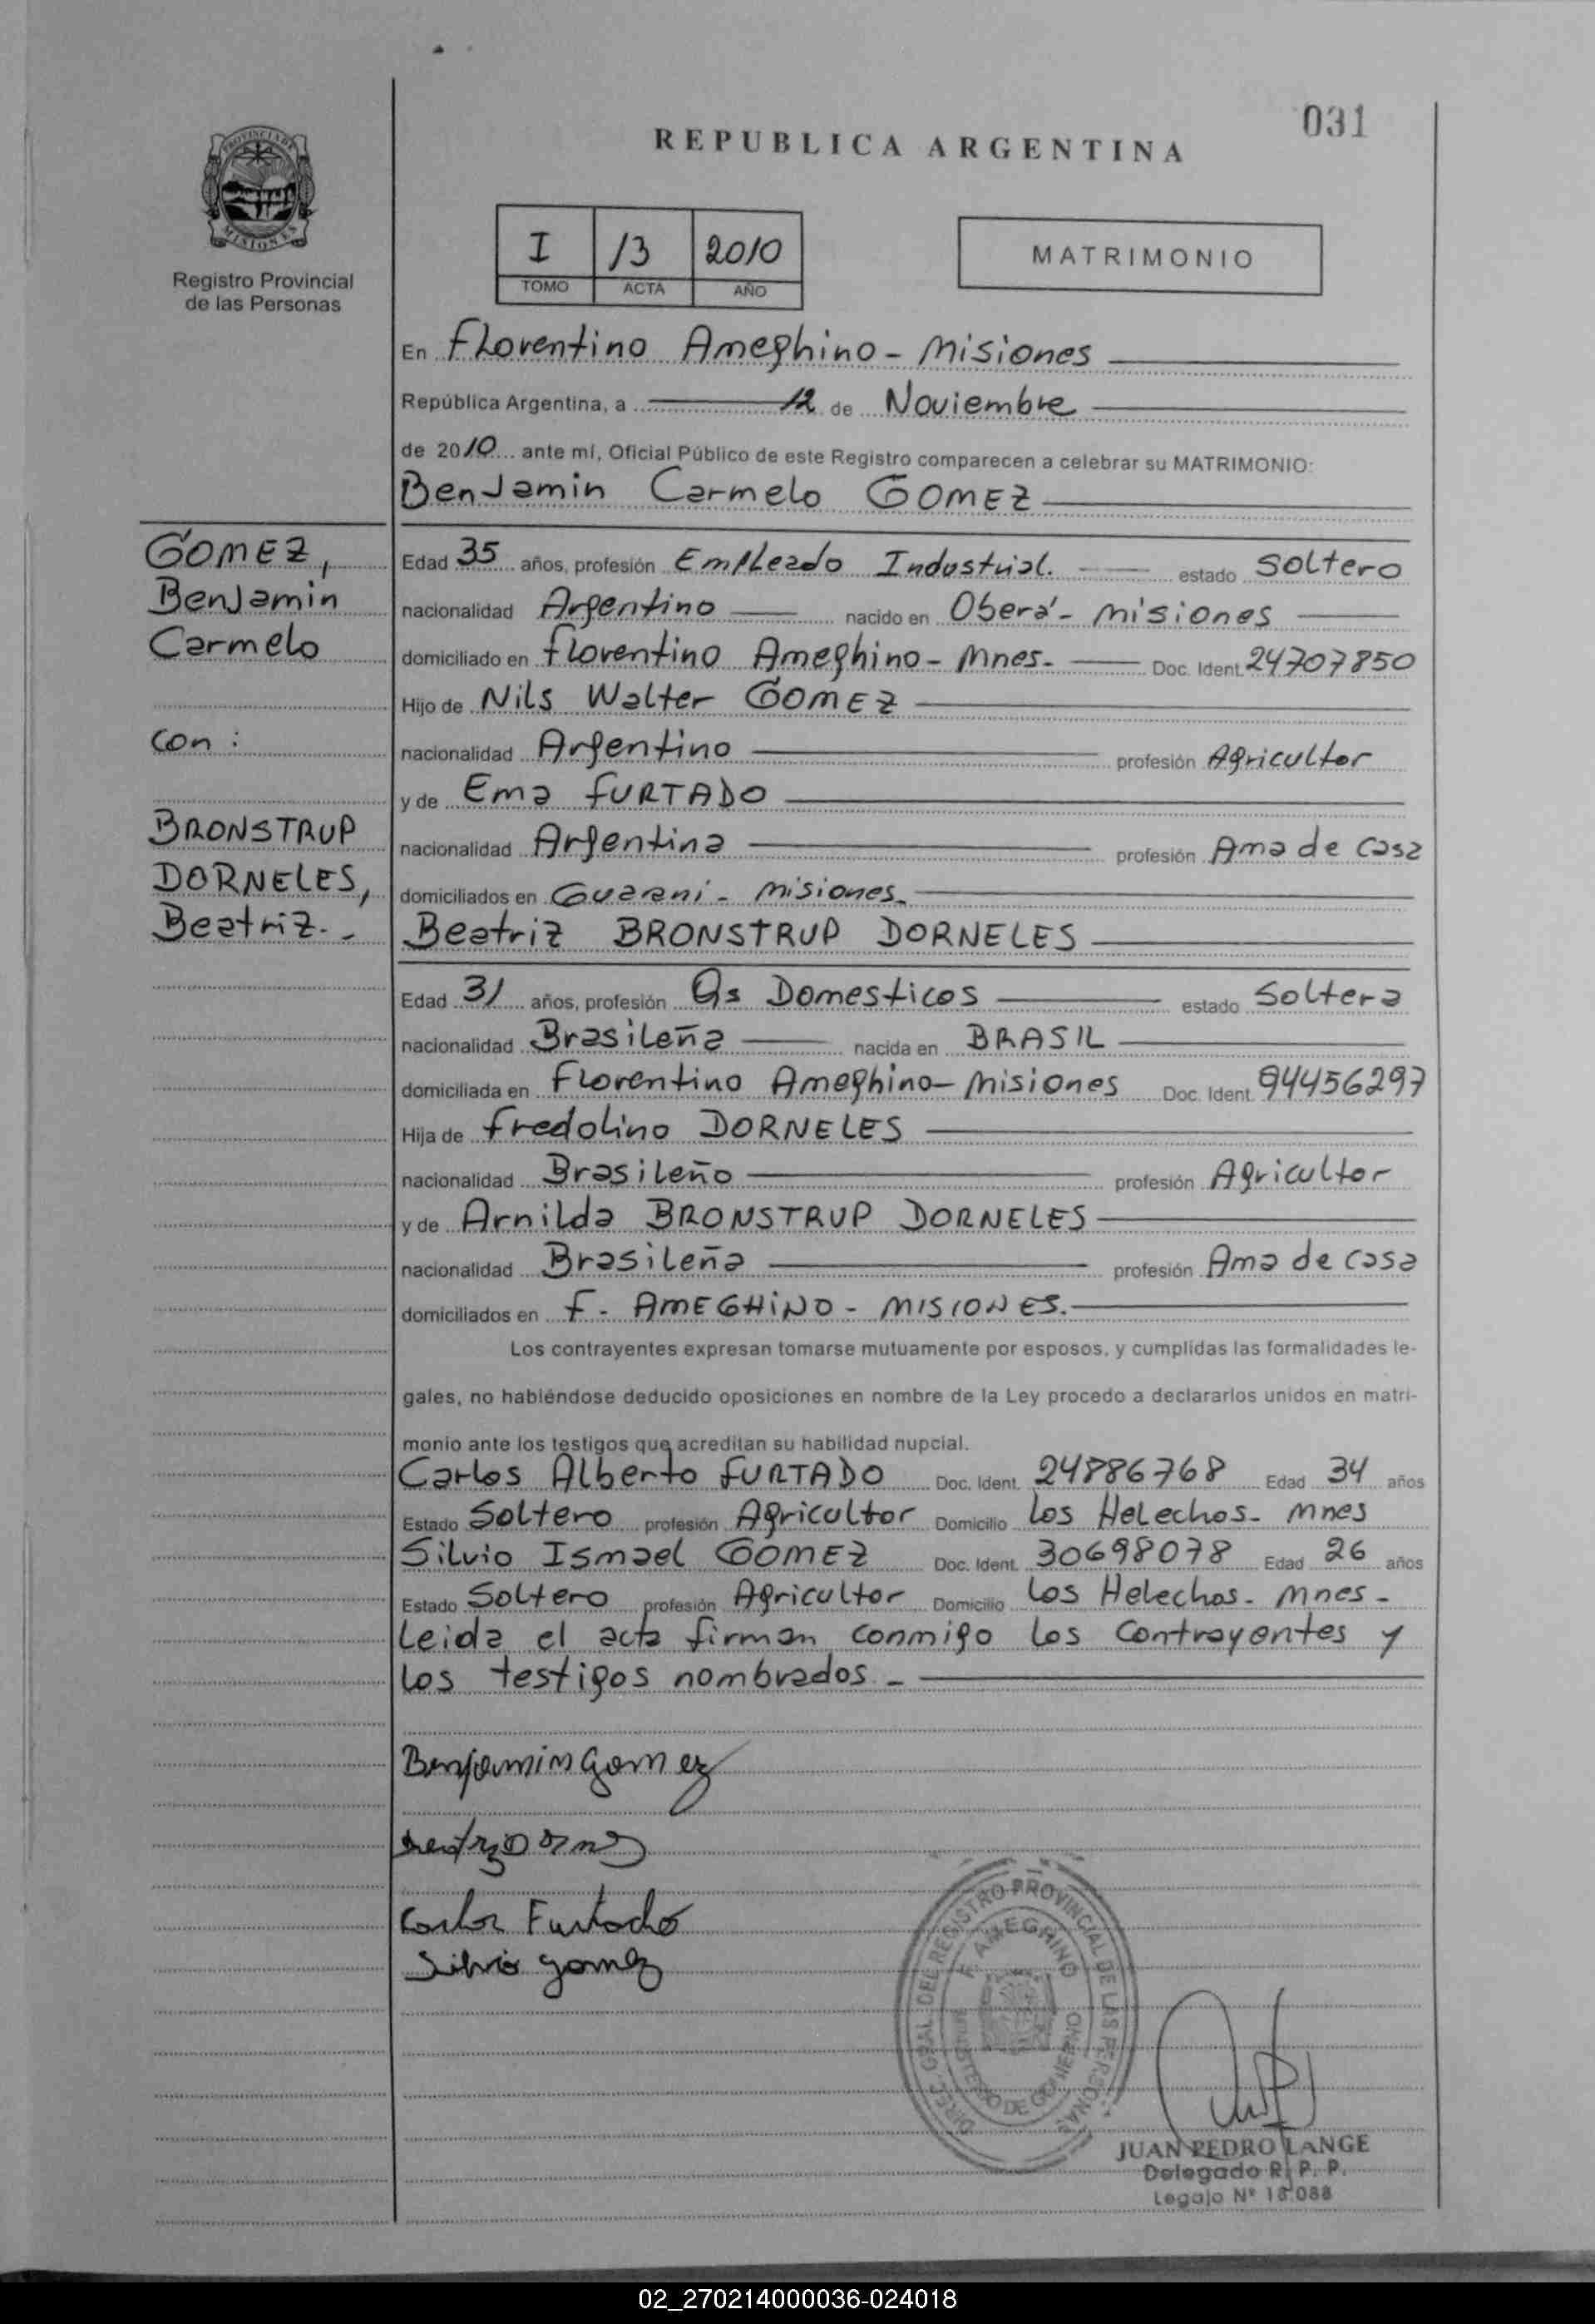 031
REPUBLICA ARGENTINA
PROVINCIA DE
MISIONES
Registro Provincial
de las Personas
I 13 2010
TOMO ACTA AÑO
MATRIMONIO
En Florentino Ameghino - Misiones
República Argentina, a 12 de Noviembre
de 2010 ante mí, Oficial Público de este Registro comparecen a celebrar su MATRIMONIO:
BenJamin Carmelo GOMEZ
GOMEZ,
BenJamin
Carmelo
con :
BRONSTRUP
DORNELES,
Beatriz.-
Edad 35 años, profesión Empleado Industrial. estado Soltero
nacionalidad Argentino nacido en Oberá - Misiones
domiciliado en Florentino Ameghino - Mnes. Doc. Ident. 24707850
Hijo de Nils Walter GOMEZ
nacionalidad Argentino profesión Agricultor
y de Ema FURTADO
nacionalidad Argentina profesión Ama de casa
domiciliados en Guaraní - Misiones.
Beatriz BRONSTRUP DORNELES
Edad 31 años, profesión Qs Domesticos estado Soltera
nacionalidad Brasileña nacida en BRASIL
domiciliada en Florentino Ameghino - Misiones Doc. Ident. 94456297
Hija de Fredolino DORNELES
nacionalidad Brasileño profesión Agricultor
y de Arnilda BRONSTRUP DORNELES
nacionalidad Brasileña profesión Ama de casa
domiciliados en F. AMEGHINO - MISIONES.
Los contrayentes expresan tomarse mutuamente por esposos, y cumplidas las formalidades le-
gales, no habiéndose deducido oposiciones en nombre de la Ley procedo a declararlos unidos en matri-
monio ante los testigos que acreditan su habilidad nupcial.
Carlos Alberto FURTADO Doc. Ident. 24886768 Edad 34 años
Estado Soltero profesión Agricultor Domicilio Los Helechos - Mnes
Silvio Ismael GOMEZ Doc. Ident. 30698078 Edad 26 años
Estado Soltero profesión Agricultor Domicilio Los Helechos - Mnes -
Leida el acta firman conmigo los contrayentes y
los testigos nombrados -
Benjamin Gomez
Carlos Furtado
Silvio gomez
DIREC. GRAL. DEL REGISTRO PROVINCIAL DE LAS PERSONAS
F. AMEGHINO
DE GOBIERNO
JUAN PEDRO LANGE
Delegado R. P. P.
Legajo Nº 18.088
02_270214000036-024018